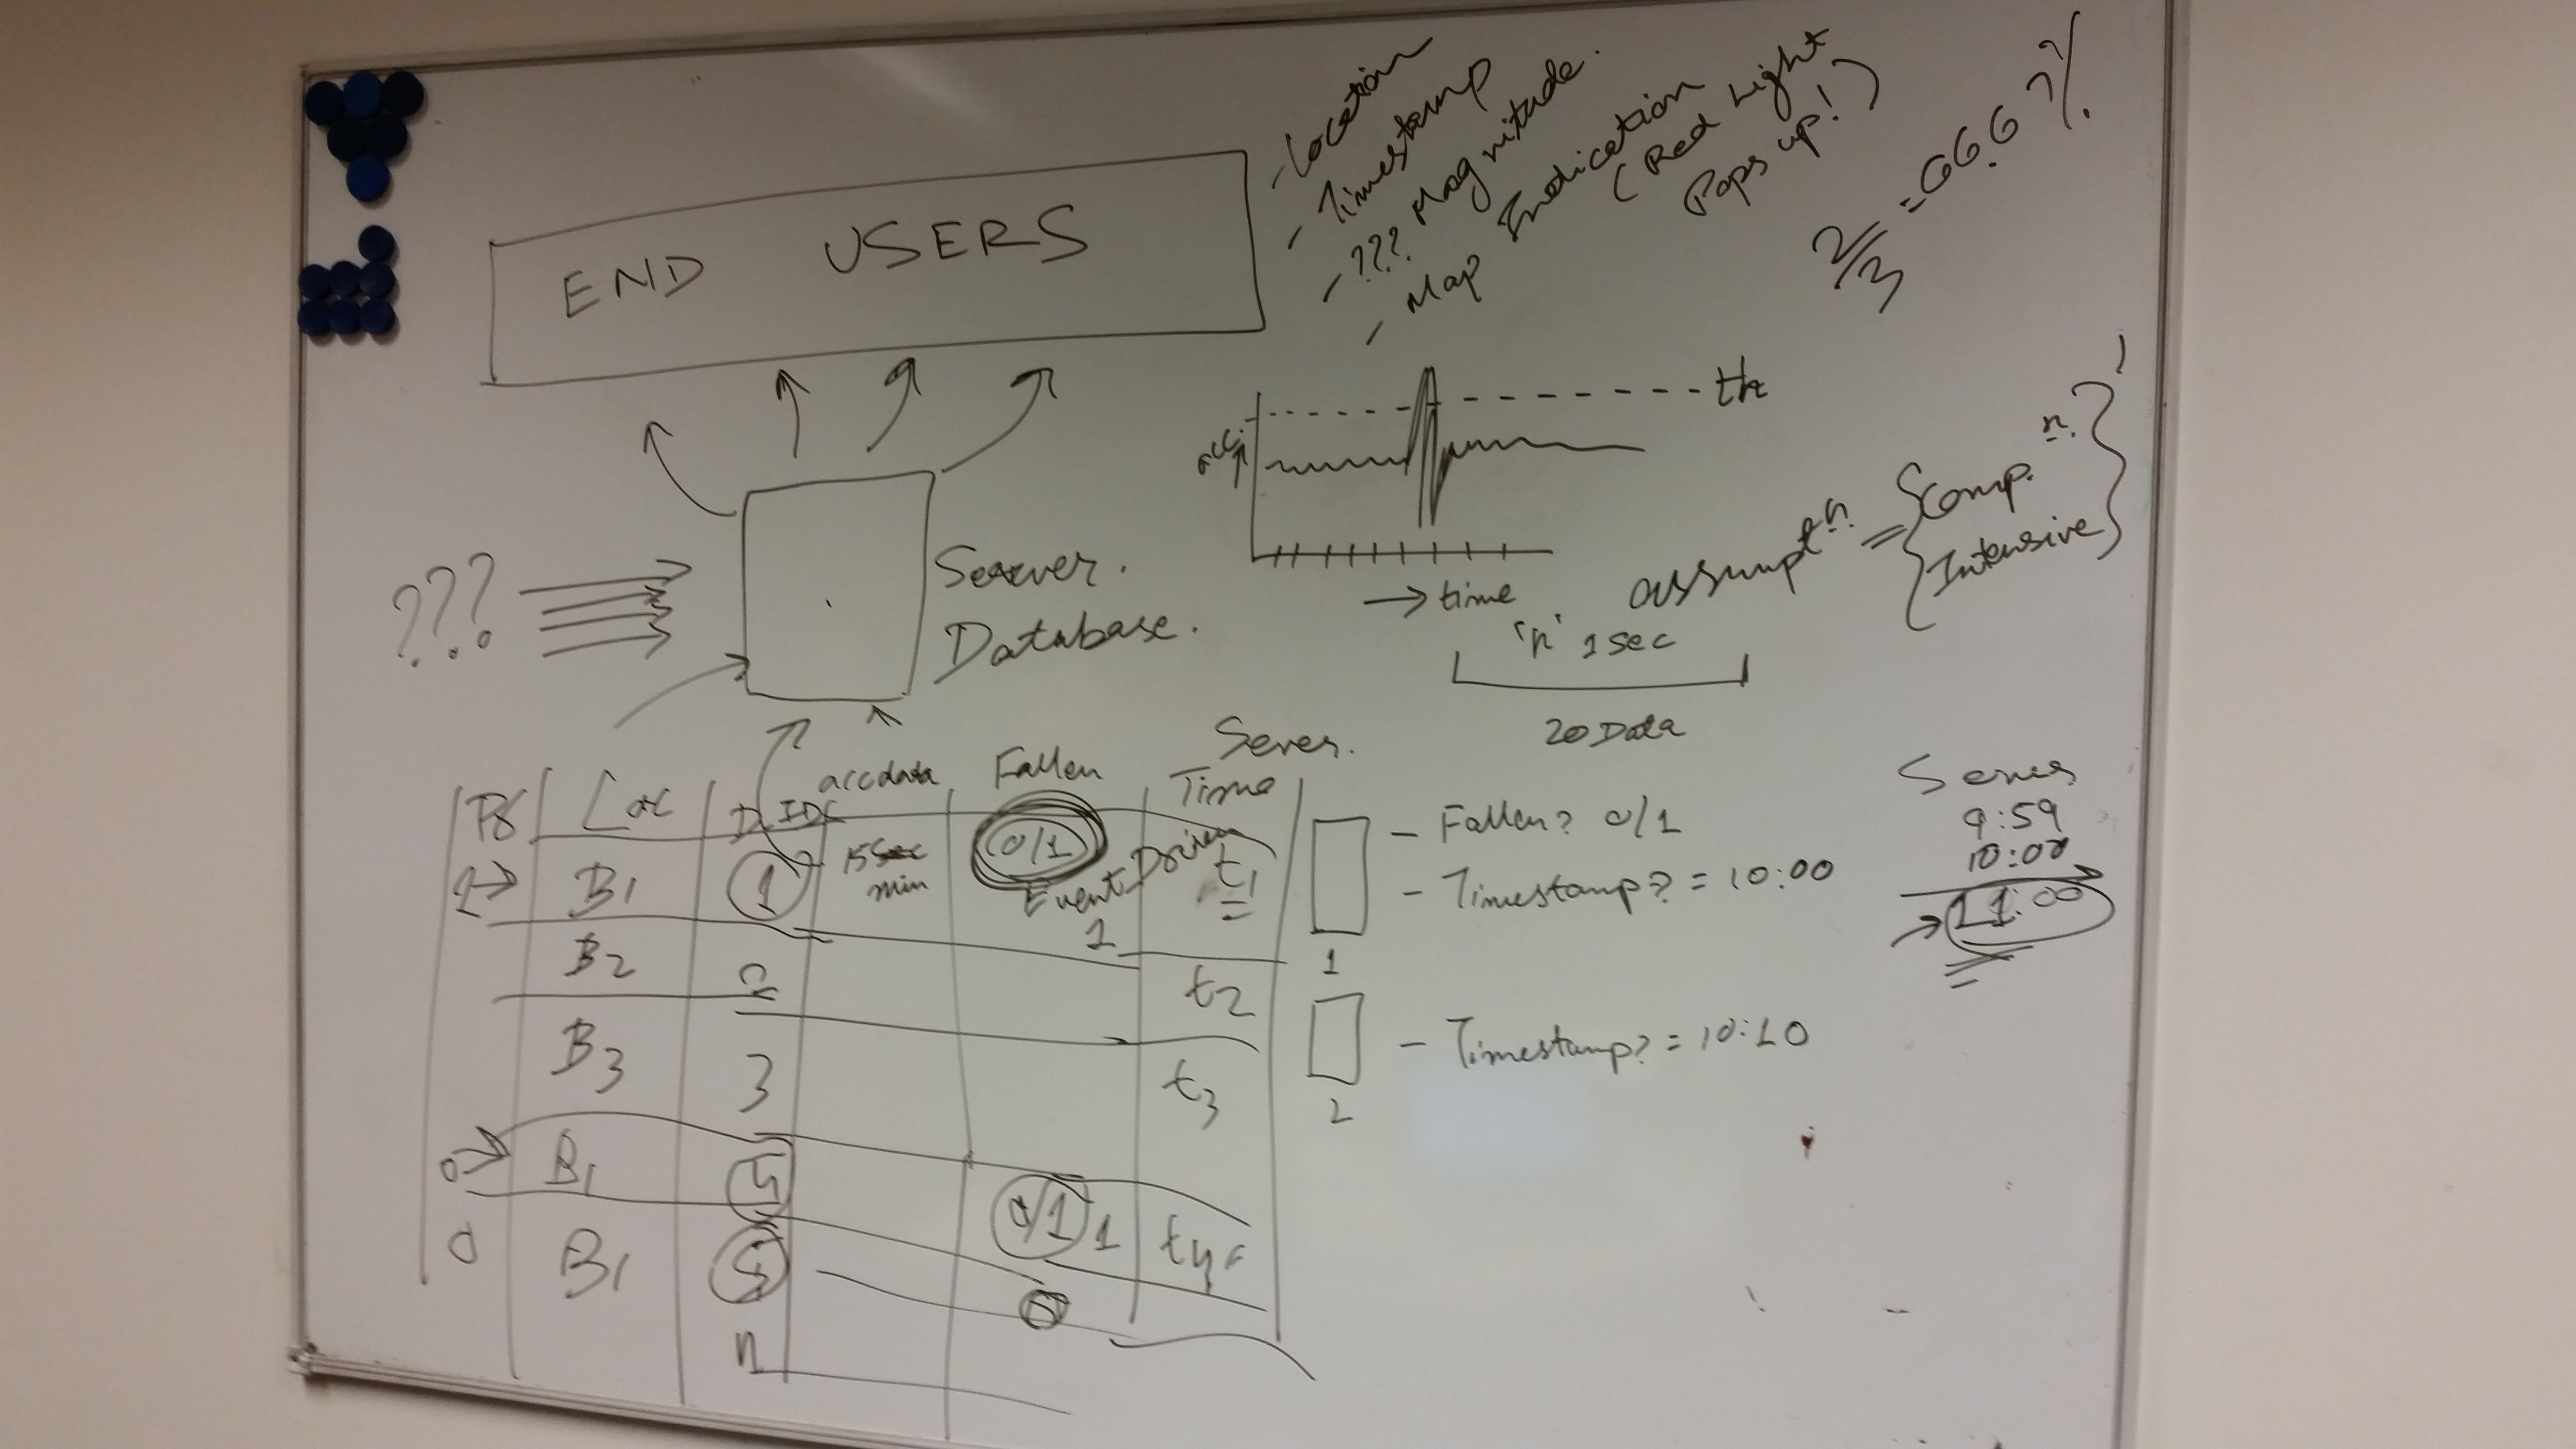 END USERS
- Location
- Timestamp
- ??? Magnitude.
- Map Indication
(Red Light
Pops up!)
2/3 = 66.6 %
th
acc.
→ time
'n' 1 sec
20 Data
assumptn. = {Comp.n.
Intensive}
???
Server.
Database.
Loc
D IDs
acc data
Fallen
Server.
Time
1→ B1 1
15 sec
min
0/1
Event Driven
1
t1
B2 2 t2
B3 3 t3
0→ B1 4 0/1 1 t4
0 B1 5 0
n
- Fallen? 0/1
- Timestamp? = 10:00
1
- Timestamp? = 10:10
2
Server
9:59
10:00
→ 11:00